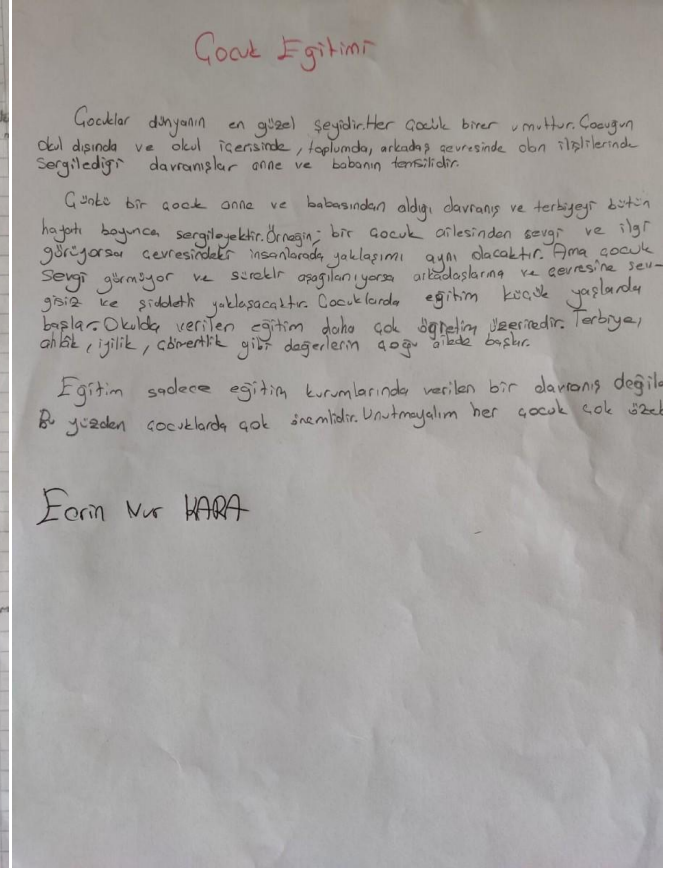 Çocuk Eğitimi
Çocuklar dünyanın en güzel şeyidir.Her çocuk birer umuttur.Çocuğun
okul dışında ve okul içerisinde, toplumda, arkadaş çevresinde olan ilişlilerinde
sergilediği davranışlar anne ve babanın temsilidir.
Çünkü bir çocuk anne ve babasından aldığı davranış ve terbiyeyi bütün
hayatı boyunca sergileyektir.Örneğin; bir çocuk ailesinden sevgi ve ilgi
görüyorsa çevresindeki insanlarada yaklaşımı aynı olacaktır. Ama çocuk
sevgi görmüyor ve sürekli aşağılanıyorsa arkadaşlarına ve çevresine sev-
gisiz ve şiddetli yaklaşacaktır. Çocuklarda eğitim küçük yaşlarda
başlar. Okulda verilen eğitim daha çok öğretim üzerinedir. Terbiye,
ahlak, iyilik, cömertlik gibi değerlerin çoğu ailede başlar.
Eğitim sadece eğitim kurumlarında verilen bir davranış değil
Bu yüzden çocuklarda çok önemlidir.Unutmayalım her çocuk çok özel
Ecrin Nur KARA